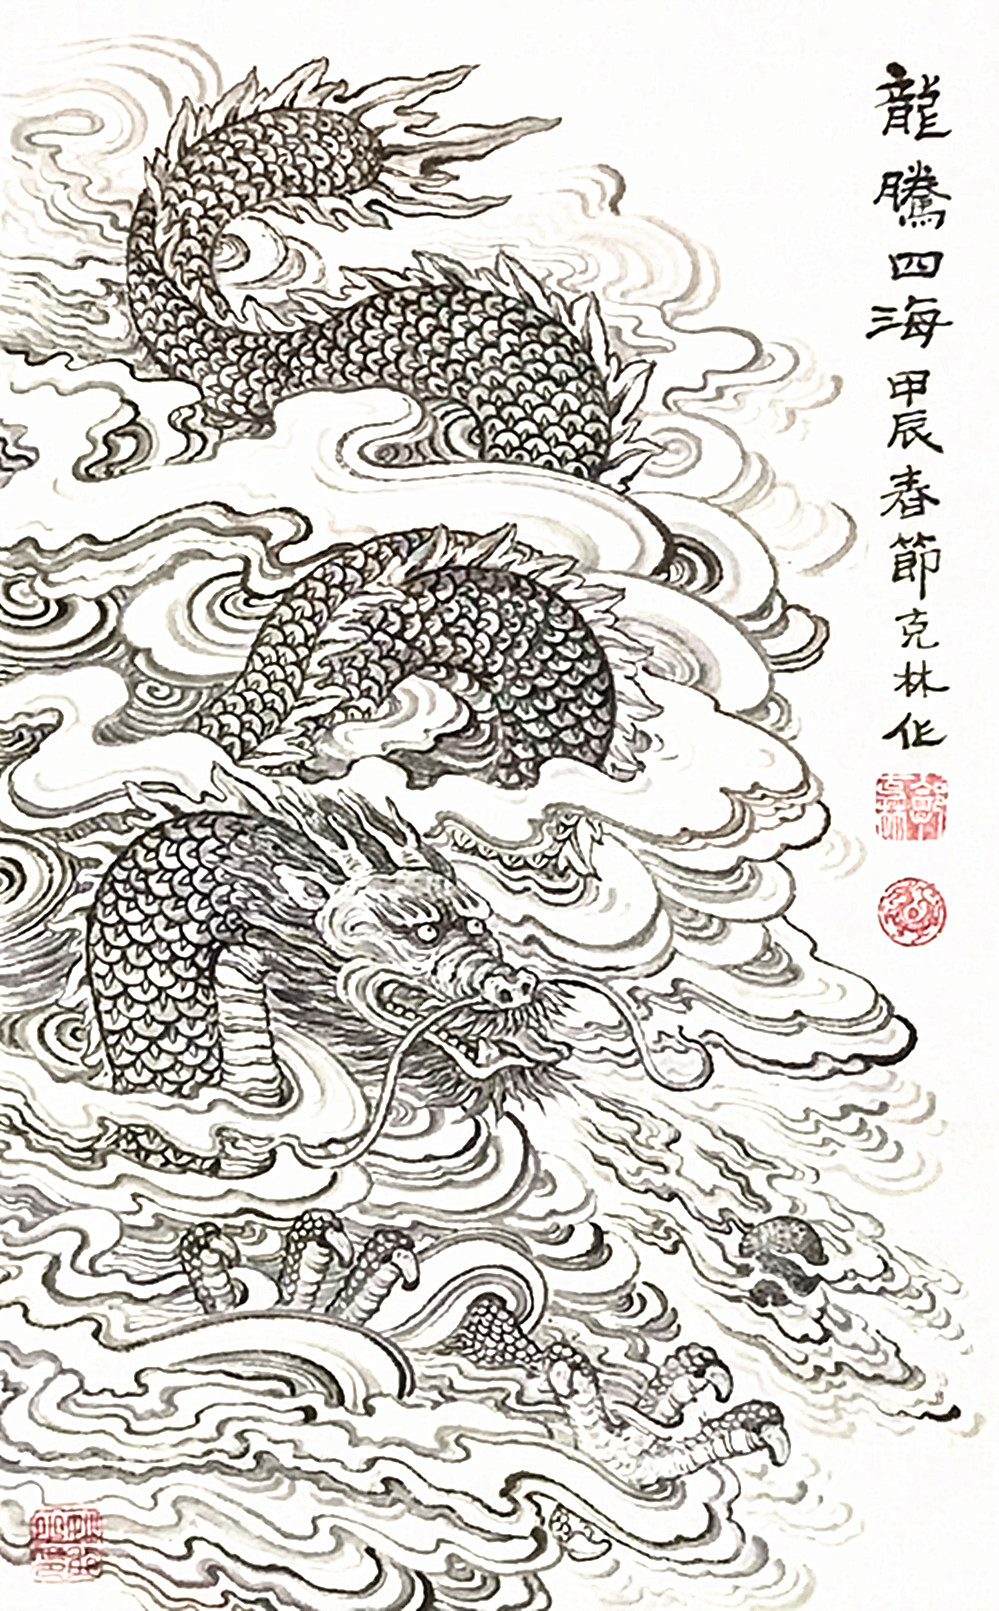 龍騰四海甲辰春節克林作